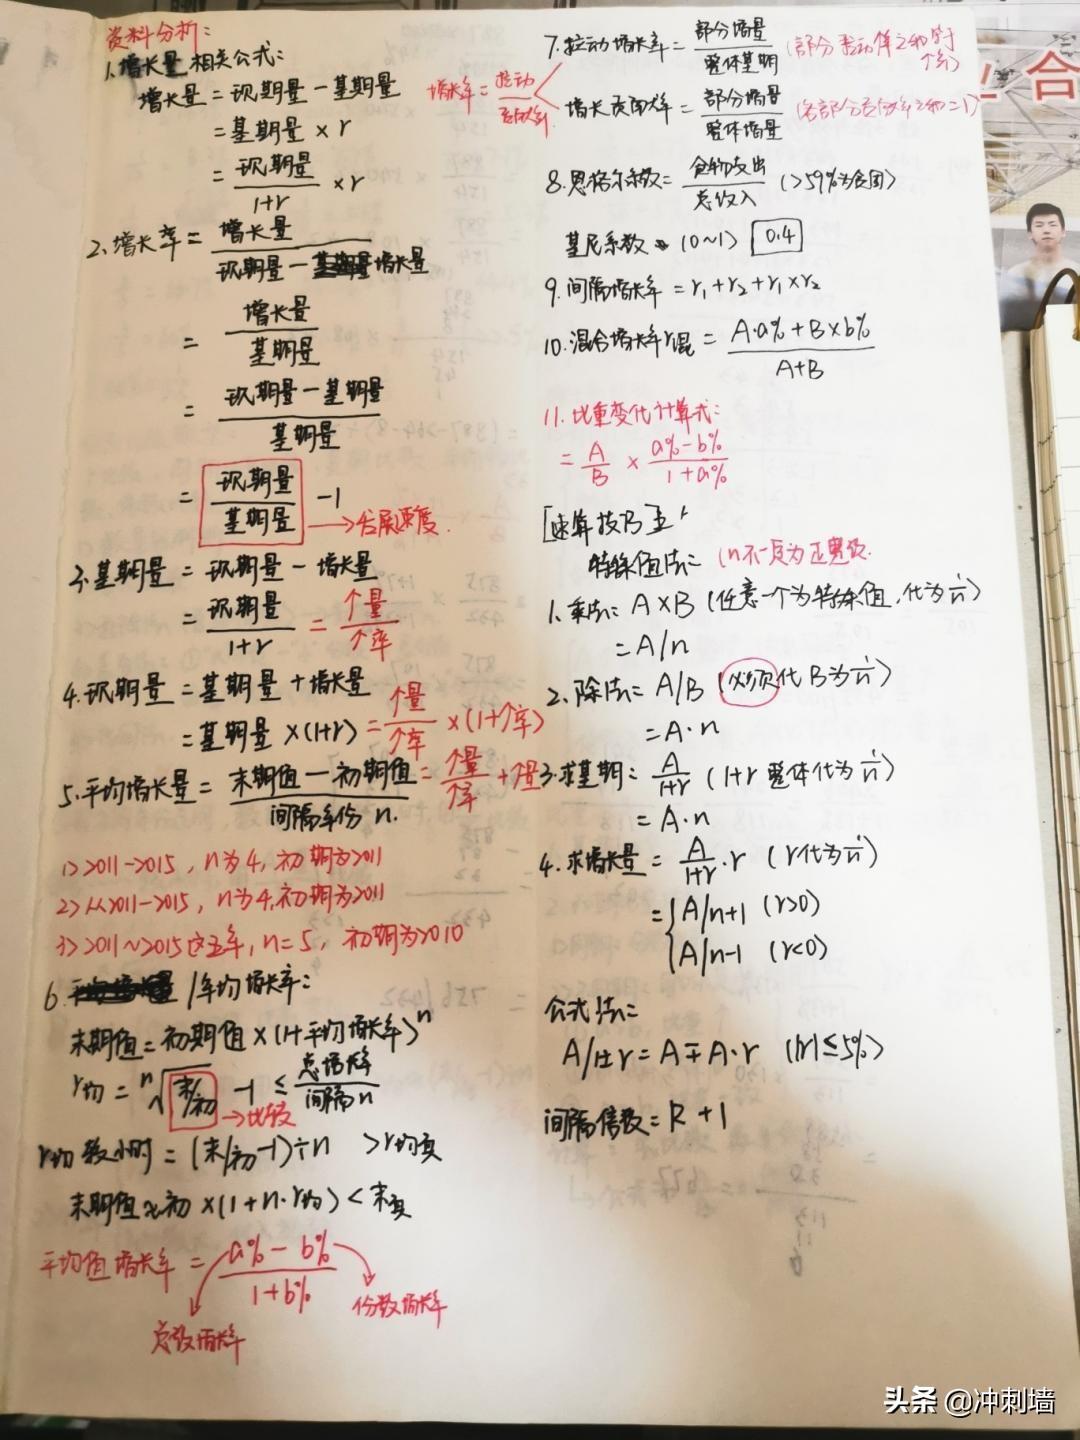 资料分析:
1.增长量相关公式:
增长量 = 现期量 - 基期量
= 基期量 × r
= 现期量/1+r × r
2.增长率 = 增长量/现期量-增长量
= 增长量/基期量
= 现期量-基期量/基期量
= 现期量/基期量 -1 →发展速度.
3.基期量 = 现期量 - 增长量
= 现期量/1+r = 个量/个率
4.现期量 = 基期量 + 增长量
= 基期量 × (1+r) = 个量/个率 × (1+个率)
5.平均增长量 = 末期值-初期值/间隔年份n. = 个量/个率 + 个量
1>2011-2015, n为4, 初期为2011
2>从2011-2015, n为4, 初期为2011
3>2011~2015这五年, n=5, 初期为2010
6. /年均增长率:
末期值=初期值×(1+平均增长率)ⁿ
r均 = ⁿ√末/初 -1 ≤ 总增长率/间隔n
→比较
r均较小时 = (末/初-1)÷n >r均真
末期值≈初×(1+n·r均) < 末真
平均值增长率 = a%-b%/1+b%
份数增长率
总数增长率
7.拉动增长率 = 部分增量/整体基期 (部分拉动率之和等于个率)
增长率 = 拉动/贡献率
增长贡献率 = 部分增量/整体增量 (各部分贡献率之和=1)
8.恩格尔系数 = 食物支出/总收入 (>59%为贫困)
基尼系数 (0~1) 0.4
9.间隔增长率 = r₁+r₂+r₁×r₂
10.混合增长率r混 = A·a%+B×b%/A+B
11.比重变化计算式:
= A/B × a%-b%/1+a%
[速算技巧]
特殊值法: (n不一定为正整数.
1.乘法: A×B (任意一个为特殊值,代为1/n)
= A/n
2.除法: A/B (必须代B为1/n)
= A·n
3.求基期: A/1+r (1+r整体代为1/n)
= A·n
4.求增长量 = A/1+r·r (r代为1/n)
= {A/n+1 (r>0)
A/n-1 (r<0)
公式法:
A/1±r = A∓A·r (|r|≤5%)
间隔倍数 = R+1
业合
头条 @冲刺墙